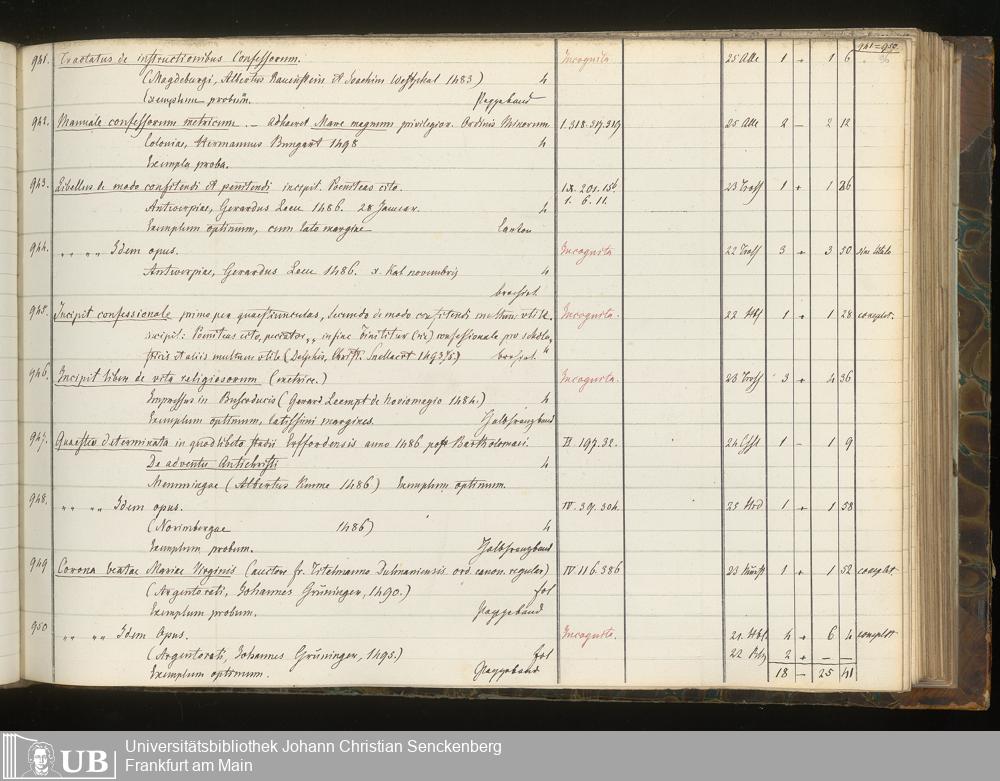 941=950.
96
941. Tractatus de instructionibus Confessorum. Incognita. 25 Alle 1 + 1 6
(Magdeburgi, Albertus Rauenstein et Joachim Westphal 1483) 4
Exemplum probum. Pappeband
942. Manuale confessorum metricum. — adhaeret Mare magnum privilegior. Ordinis Minorum 1.318.317.319 25 Alle 2 — 2 12
Coloniae, Hermannus Bungart 1498 4
Exempla proba.
943. Libellus de modo confitendi et penitendi incipit. Poeniteas cito. 1.x. 201. 156 23 Tross 1 + 1 26
Antwerpiae, Gerardus Leeu 1486. 28 Januar. 4 1. 6. 11.
Exemplum optimum, cum lato margine Carton
944. " " Idem opus. Incognita 22 Tross 3 + 3 50 sine titulo
Antwerpiae, Gerardus Leeu 1486. x. Kal novembris 4
brochirt.
945. Incipit confessionale primo per quaestiunculas, secundo de modo confitendi multum utile. Incognita. 22 1 + 1 28 complet.
incipit: Poeniteas cito, peccator, " in fine finititur (sic) confessionale pro scholasticis et aliis multum utile (Delphis, Christ. Snellaert 1493/5.) brochirt. 4
946. Incipit liber de vita religiosorum (metrice.) Incognita. 23 Tross 3 + 4 36
Impressus in Buscoducis (Gerard Leempt de Noviomagio 1484.) 4
Exemplum optimum, latissimi margines. Halbfranzband
947. Quaestio determinata in quodlibeto studii Erffordensis anno 1486 post Bartholomaei. II. 197. 32. 24 1 - 1 9
De adventu Antichristi 4
Memmingae (Albertus Kunne 1486) Exemplum optimum.
948. " " Idem opus. IV. 39. 304. 25 1 + 1 58
(Norimbergae 1486) 4
Exemplum probum. Halbfranzband
949 Corona beatae Mariae Virginis (auctore fr. ord. canon. regular) IV 116. 386 23 1 + 1 52 complet.
(Argentorati, Johannes Grüninger, 1490.) fol
Exemplum probum. Pappeband
950 " " Idem Opus. Incognita. 21. 4 + 6 4 complet
(Argentorati, Johannes Grüninger, 1495.) fol 22 2 + — —
Exemplum optimum. Pappeband 18 — 25 41
UB
Universitätsbibliothek Johann Christian Senckenberg
Frankfurt am Main